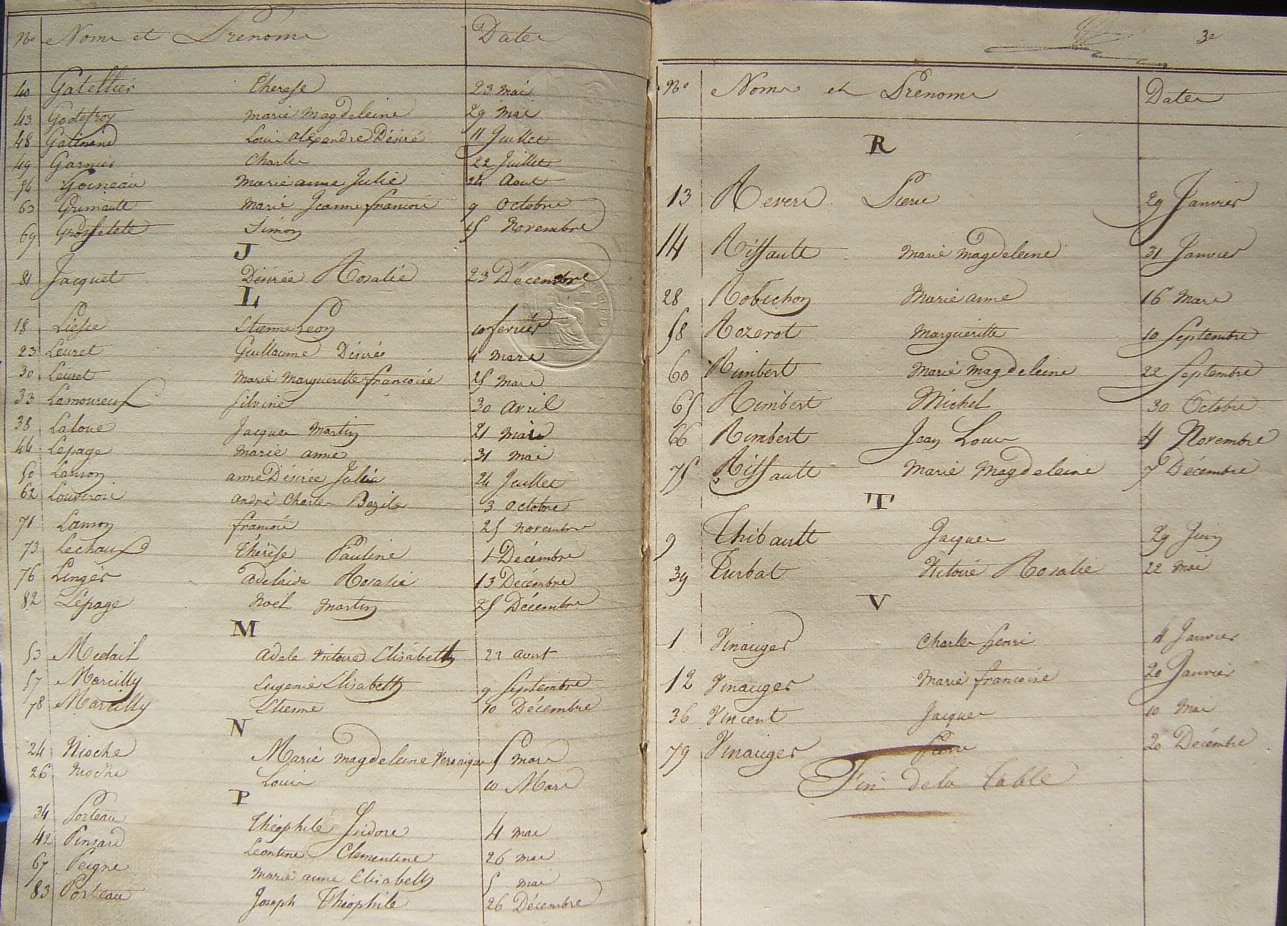 No Noms et Prenoms Dates
40 Gatellier Therese 23 mai
43 Godefroy marie Magdeleine 29 mai
48 Gatinand Louis alexandre Désiré 11 Juillet
49 Garnier Charles 22 Juillet
54 Goineau Marie anne Julie 24 Aout
63 Grimault Marie Jeanne francoise 9 Octobre
69 Grosseteste Simon 15 Novembre
J
81 Jacquet Désirée Rosalie 23 Décembre
L
18 Etienne Leon 10 fevrier
23 Leuret Guillaume Désiré 4 mars
30 Leuret Marie Marguerite francoise 25 Mars
33 Lamoureux Silvine 30 Avril
38 Laloue Jacques Martin 21 mai
44 Lepage marie anne 31 mai
50 Lanson anne Désirée Julie 24 Juillet
62 andré Charles Bazile 3 Octobre
71 Lanson francois 25 novembre
73 Lechaux Thérèse Pauline 1 Décembre
76 Linger adelaide Rosalie 13 Décembre
82 Lepage Noël Martin 25 Décembre
M
53 Medail Adele victoire Elisabeth 22 aout
57 Marcilly Eugenie Elisabeth 9 Septembre
78 Marcilly Etienne 10 Décembre
N
24 Nioche Marie magdeleine Veronique 5 mars
26 Nioche Louis 10 Mars
P
34 Porteau Théophile Isidore 4 mai
42 Pinsard Leontine Clementine 26 mai
67 Peigne Marie anne Elisabeth 5
83 Porteau Joseph Théophile 26 Décembre
3e
No Noms et Prenoms Dates
R
13 Revers Pierre 29 Janvier
14 Riffault Marie magdeleine 31 Janvier
28 Robichon Marie anne 16 Mars
58 Rozerot Marguerite 10 Septembre
60 Rimbert Marie Magdeleine 22 Septembre
65 Rimbert Michel 30 Octobre
66 Rimbert Jean Louis 4 Novembre
75 Riffault Marie Magdeleine 7 Décembre
T
9 Thibault Jacques 29
39 Turbat Victoire Rosalie 22 mai
V
1 Vinauger Charles henri Janvier
12 Vinauger Marie francoise 20 Janvier
36 Vincent Jacques 10 Mai
79 Vinauger Pierre 20 Décembre
Fin de la table